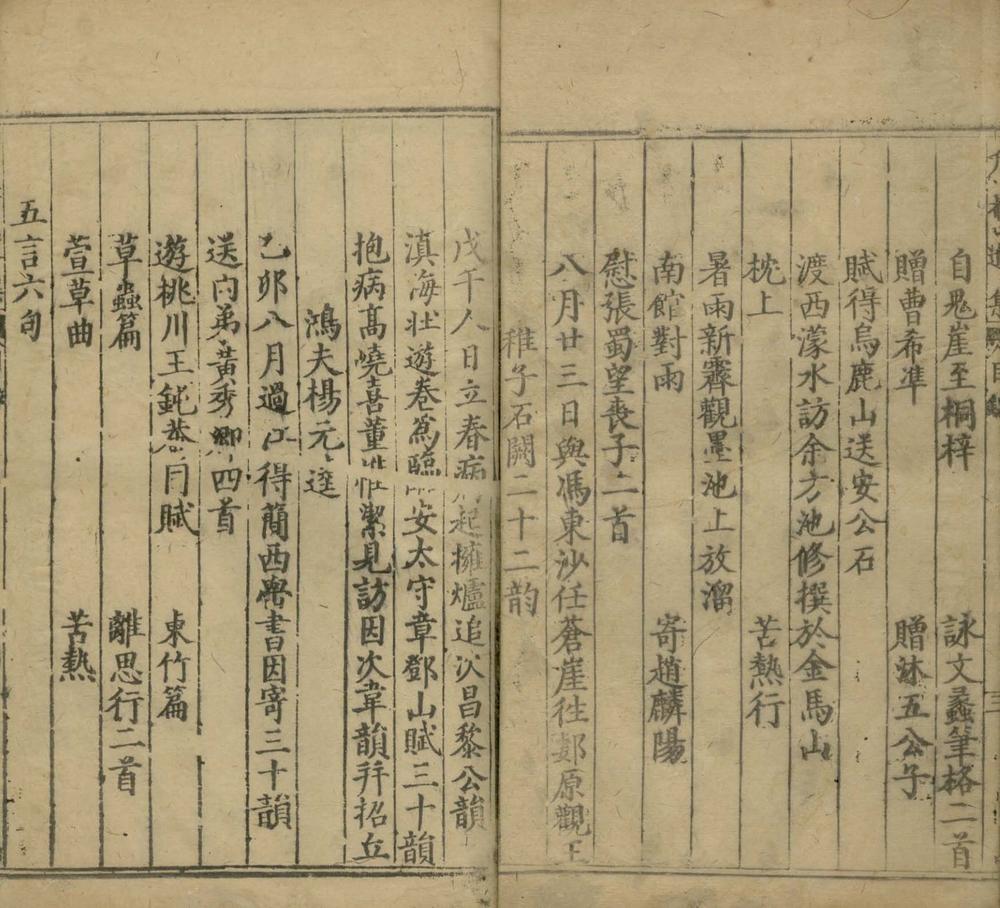 自鬼崖至桐梓 詠文蠡筆格二首
贈曹希準 贈沐五公子
賦得烏鹿山送安公石
渡西濛水訪余方池修撰於金馬山
枕上 苦熱行
暑雨新霽觀墨池上放溜
南館對雨 寄趙麟陽
慰張蜀望喪子二首
八月廿三日與馮東沙任蒼崖徃郪原觀王
稚子石闕二十二韵
戊午人日立春病起擁爐追次昌黎公韻
滇海壯遊卷爲臨安太守章鄧山賦三十韻
抱病高嶢喜董潔見訪因次韋韻并招丘
鴻夫楊元達
乙卯八月過江得簡西嶨書因寄三十韻
送内弟黃秀卿四首
遊桃川王鈍菴同賦 東竹篇
草蟲篇 離思行二首
萱草曲 苦熱
五言六句